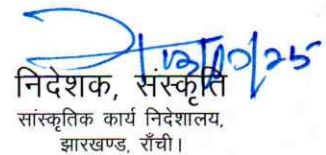 13/10/25
निदेशक, संस्कृति
सांस्कृतिक कार्य निदेशालय,
झारखण्ड, राँची।